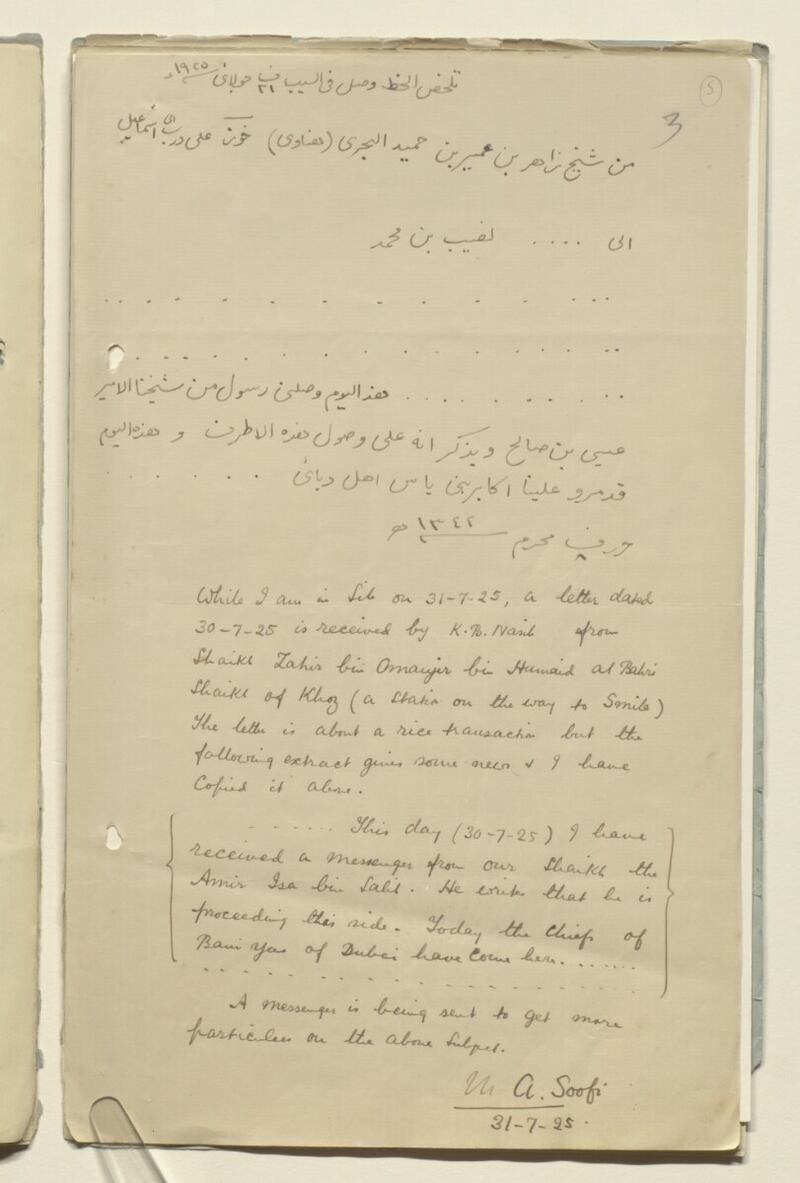 5
3
تلخص الخط وصل في السيب في ٣١ جولائ ١٩٢٥ء
من شيخ زاهر بن عمير بن حميد البحرى (هناوى) خوض على درب اسماعيل
الى .... نصيب بن محمد
. . . . . . . . . . . . .
. . . . . . . . . . . . .
. . . . . . . . هذاليوم وصلنى رسول من شيخنا الامير
عيسى بن صالح ويذكر انه على وصول هذه الاطرف و هذه اليوم
قدمرو علينا اكابر بنى ياس اهل دبائ . . . . . .
حرر في ٨ محرم ١٣٤٢ ه
While I am in Sib on 31-7-25, a letter dated
30-7-25 is received by K.B. Nasib from
Shaikh Zahir bin Omayir bin Humaid al Bahri
Shaikh of Khoz (a station on the way to Smile)
The letter is about a rice transaction but the
following extract gives some news & I have
Copied it above.
. . . . . . . This day (30-7-25) I have
received a messenger from our Shaikh the
Amir Isa bin Salih. He writes that he is
proceeding this side. Today the Chiefs of
Bani Yas of Dubai have come here. . . . . . .
. . . . . . . . . . . . . . . .
A messenger is being sent to get more
particulars on the above subject.
M A. Soofi
31-7-25.